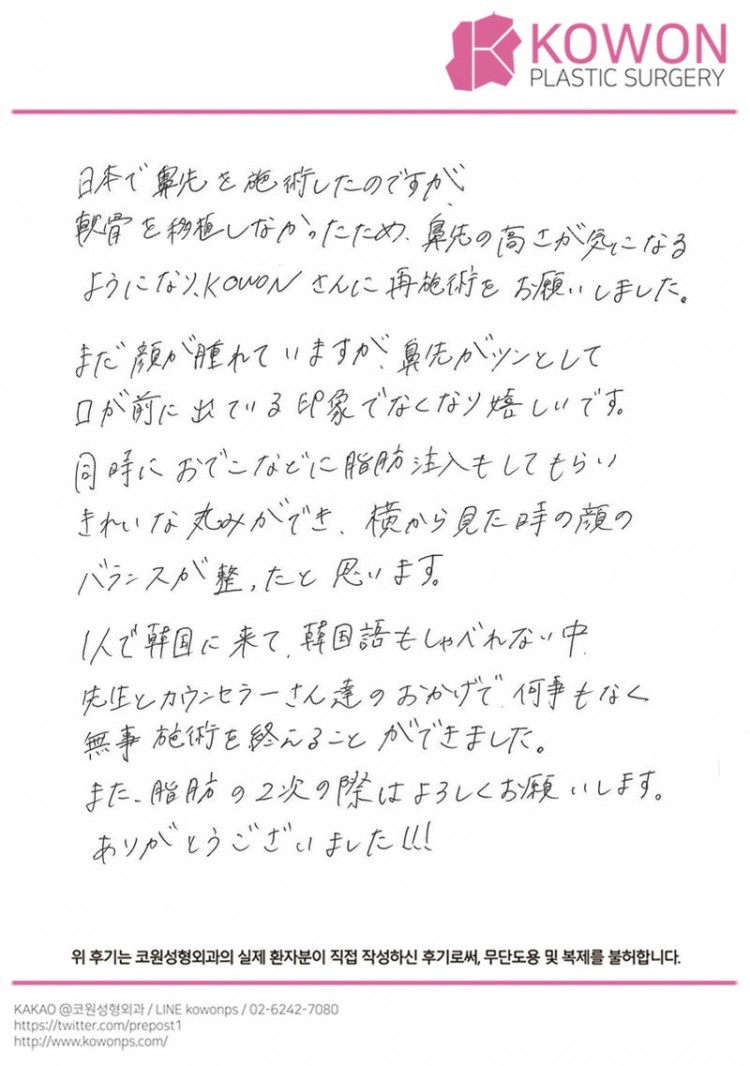 KOWON
PLASTIC SURGERY
日本で鼻先を施術したのですが、
軟骨を移植しなかったため、鼻先の高さが気になる
ようになり、KOWONさんに再施術をお願いしました。
まだ顔が腫れていますが、鼻先がツンとして
口が前に出ている印象でなくなり嬉しいです。
同時におでこなどに脂肪注入もしてもらい
きれいな丸みができ、横から見た時の顔の
バランスが整ったと思います。
1人で韓国に来て、韓国語もしゃべれない中、
先生とカウンセラーさん達のおかげで、何事もなく
無事施術を終えることができました。
また、脂肪の2次の際はよろしくお願いします。
ありがとうございました!!!
위 후기는 코원성형외과의 실제 환자분이 직접 작성하신 후기로써, 무단도용 및 복제를 불허합니다.
KAKAO @코원성형외과 / LINE kowonps / 02-6242-7080
https://twitter.com/prepost1
http://www.kowonps.com/